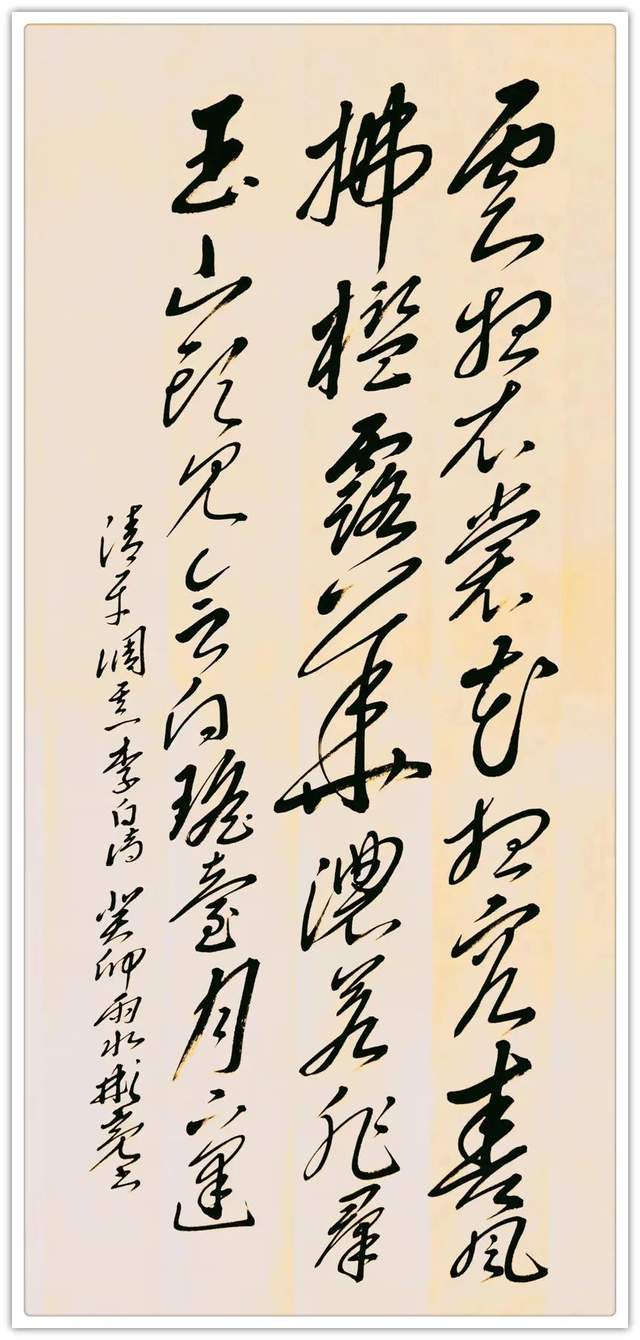 雲想衣裳花想容春風
拂檻露華濃若非羣
玉山頭見會向瑤臺月下逢
清平調其一李白詩 癸卯雨水彬書